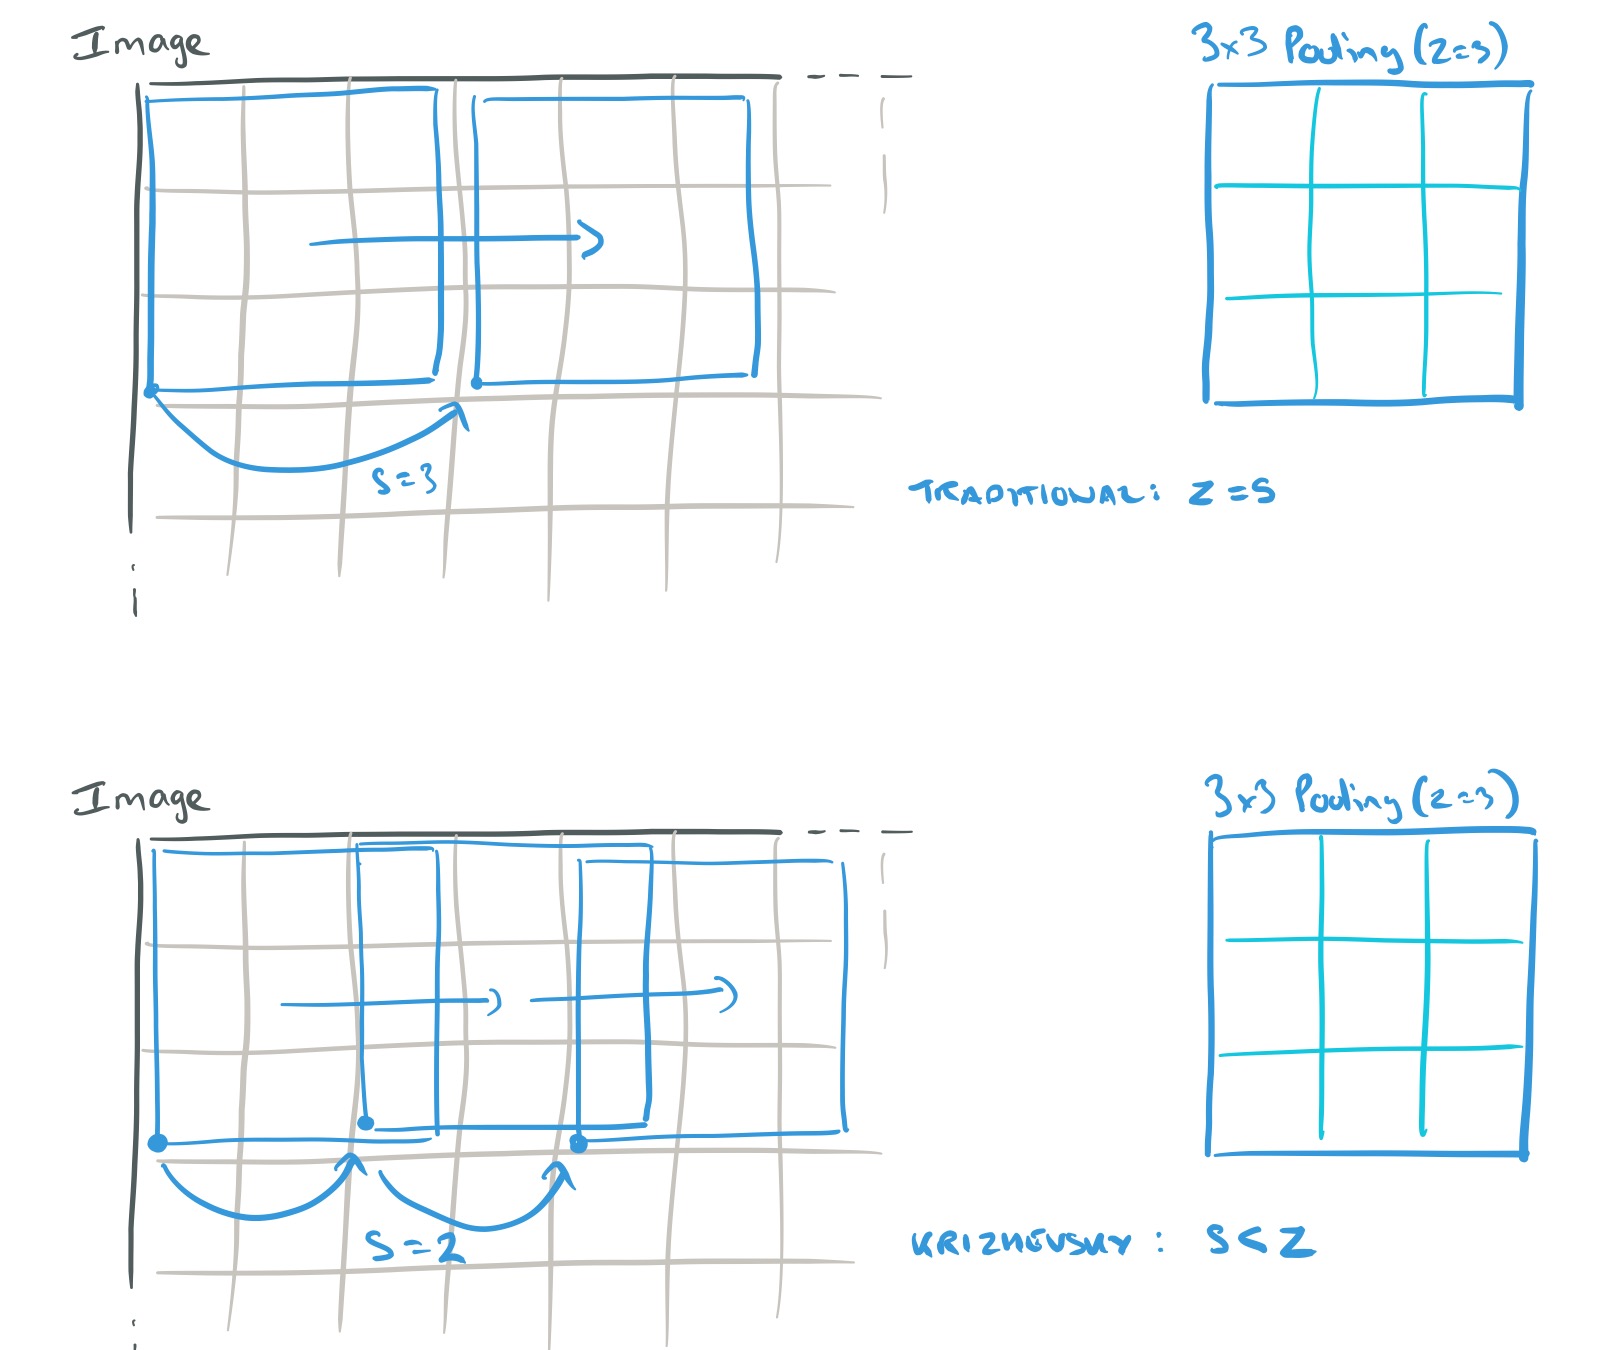 Image
3x3 Pooling (z=3)
S=3
TRADITIONAL: Z=S
Image
3x3 Pooling (z=3)
S=2
KRIZHEVSKY: S<Z